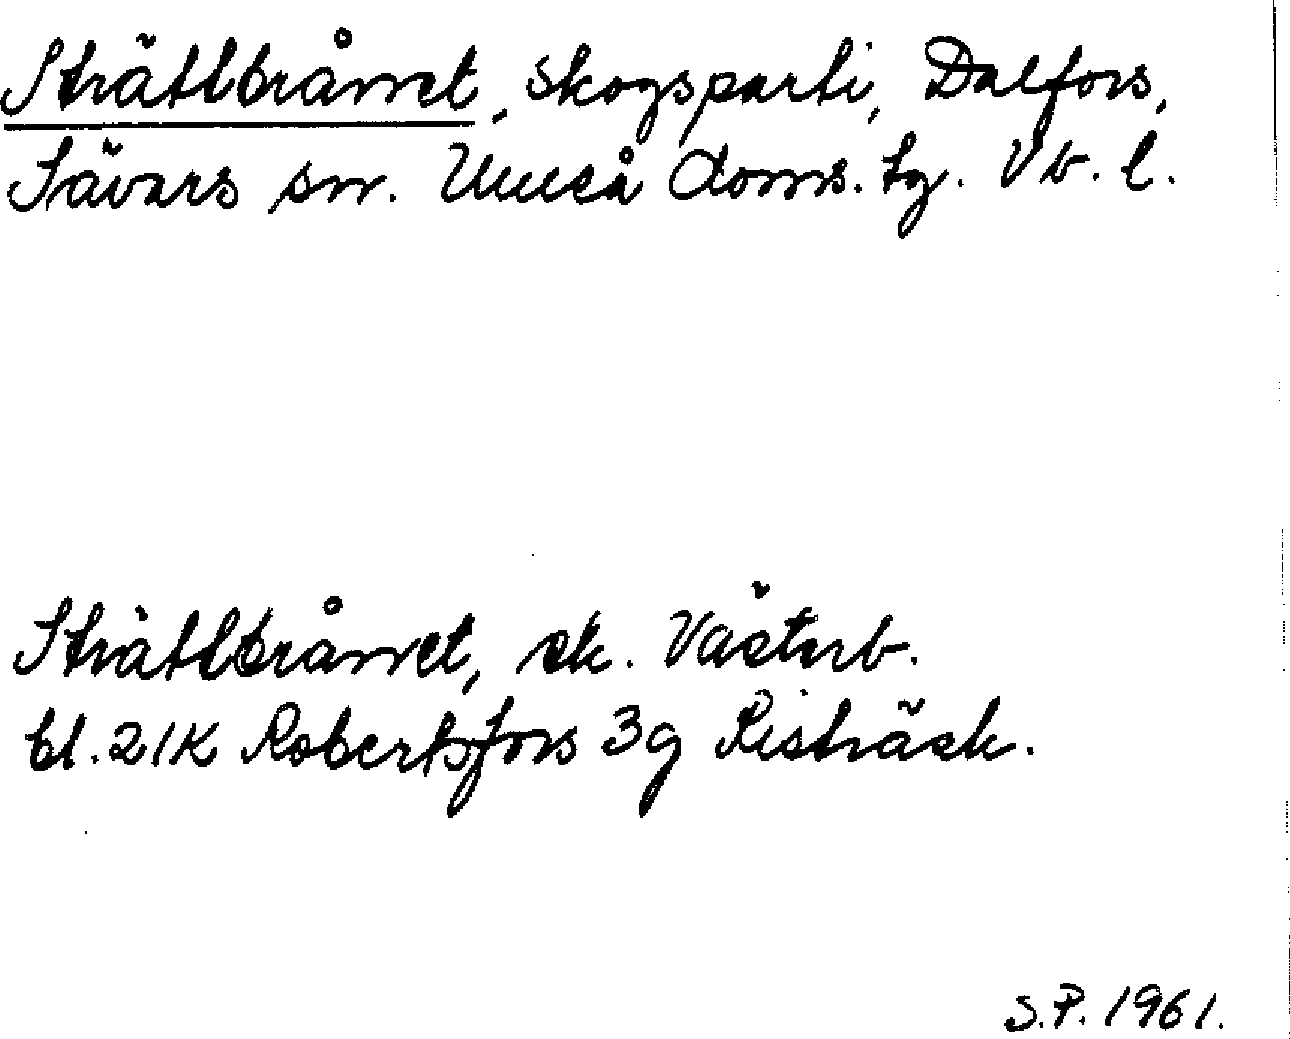 Strätlbrånet, skogsparti, Dalfors,
Sävars sn. Umeå doms. tg. Vb. l.
Strätlbrånet, sk. Västerb.
bl. 21K Robertsfors 3g Risträsk.
S.P. 1961.